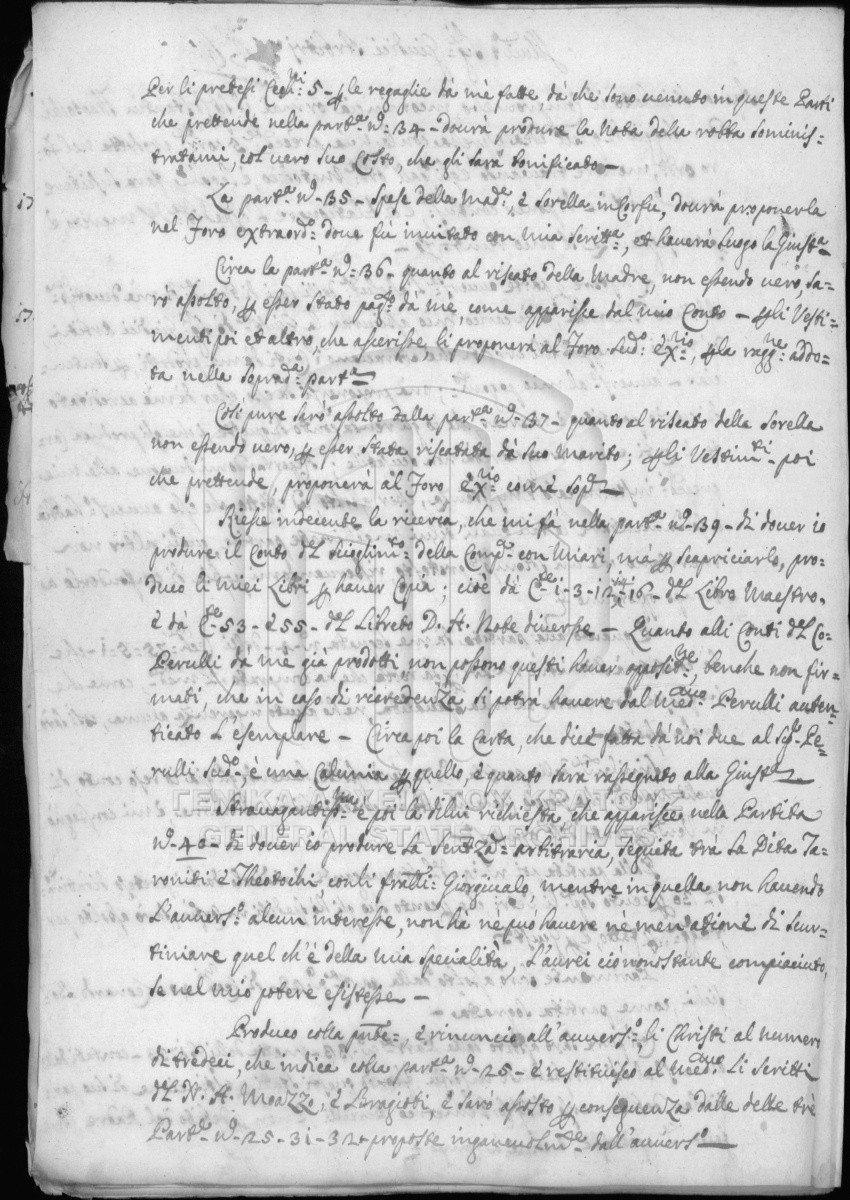 Per li pretesi Cechni: 5 - p le regaglie dà mè fatte, dà che sono venuto in queste Parti
che prettende nella parta: no: 34 - dourà produre la Nota della robba sominis=
tratami, col vero suo Costo, che gli sarà bonificato -
La parta: no: 35 - spese della Made: è Sorella in Corfù, dourà proponerla
nel Foro extraordo: doue fù inuitato con mia Scritta:, et hauerà luogo la Giusta:
Circa la parta: no: 36 - quanto al riscato della Madre, non essendo uero, sa=
rò assolto, p esser stato pago: dà mè, come apparisse dal mio Conto - p li Vesti=
menti poi et altro, che asserisse, li proponerà al Foro sudo: exrio:, p la raggne: addo=
ta nella soprada: parta:
Così pure sarò assolto dalla parta: no: 37 - quanto al riscato della Sorella
non essendo uero, p esser stata riscattata dà suo Marito; p li Vestimti: poi
che prettende, proponerà al Foro exrio: come sopa:
Riesse indecente la ricerca, che mi fà nella parta: no: 39 - di douer io
produre il Conto del sioglimto: della Compa: con Miari, mà p scapriciarlo, pro=
duco li miei Libri p hauer Copia; cioè dà Cte: 1 - 3 - 12 16 - del Libro Maestro,
è dà Cte: 53 - è 55 - del Libreto D. A. Note diuerse - Quanto alli Conti del Co:
Perulli dà me già prodotti, non possono questi hauer oppositne:, benche non fir=
mati, che in caso di ricredenza, si potrà hauere dal medmo: Perulli auten=
ticato l'esemplare - Circa poi la Carta, che dice fatta dà noi due al Sigr: Pe=
rulli sudo:, è una Calunia p quello, è quanto sarà rassegnato alla Giusta:
ΓΕΝΙΚΑ ΑΡΧΕΙΑ ΤΟΥ ΚΡΑΤΟΥΣ
GENERAL STATE ARCHIVES
Strauagantissma: è poi la dilui richiesta, che apparisce nella Partita
no: 40 - di douer io produre la Sentza: arbitraria, seguita tra la Dita Ta=
roniti è Theotochi con li fratlli: Giorgiualo, mentre in quella non hauendo
L'auuerso: alcun interesse, non hà nè può hauere nè men atione di scur=
tiniare quel ch'è della mia specialità, L'aurei ciò nonostante compiaciuto,
se nel mio potere esistesse -
Produco colla pnte:, è rinuncio all'auuerso:, li Christi al numero
di tredeci, che indica colla parta: no: 25 - è restituisco al medmo: Li Scritti
del N. H. Moazzo, è Bragiotti, è sarò assolto p conseguenza dalle dette trè
Parte: no: 25 - 31 - 32 proposte dall'auuerso: